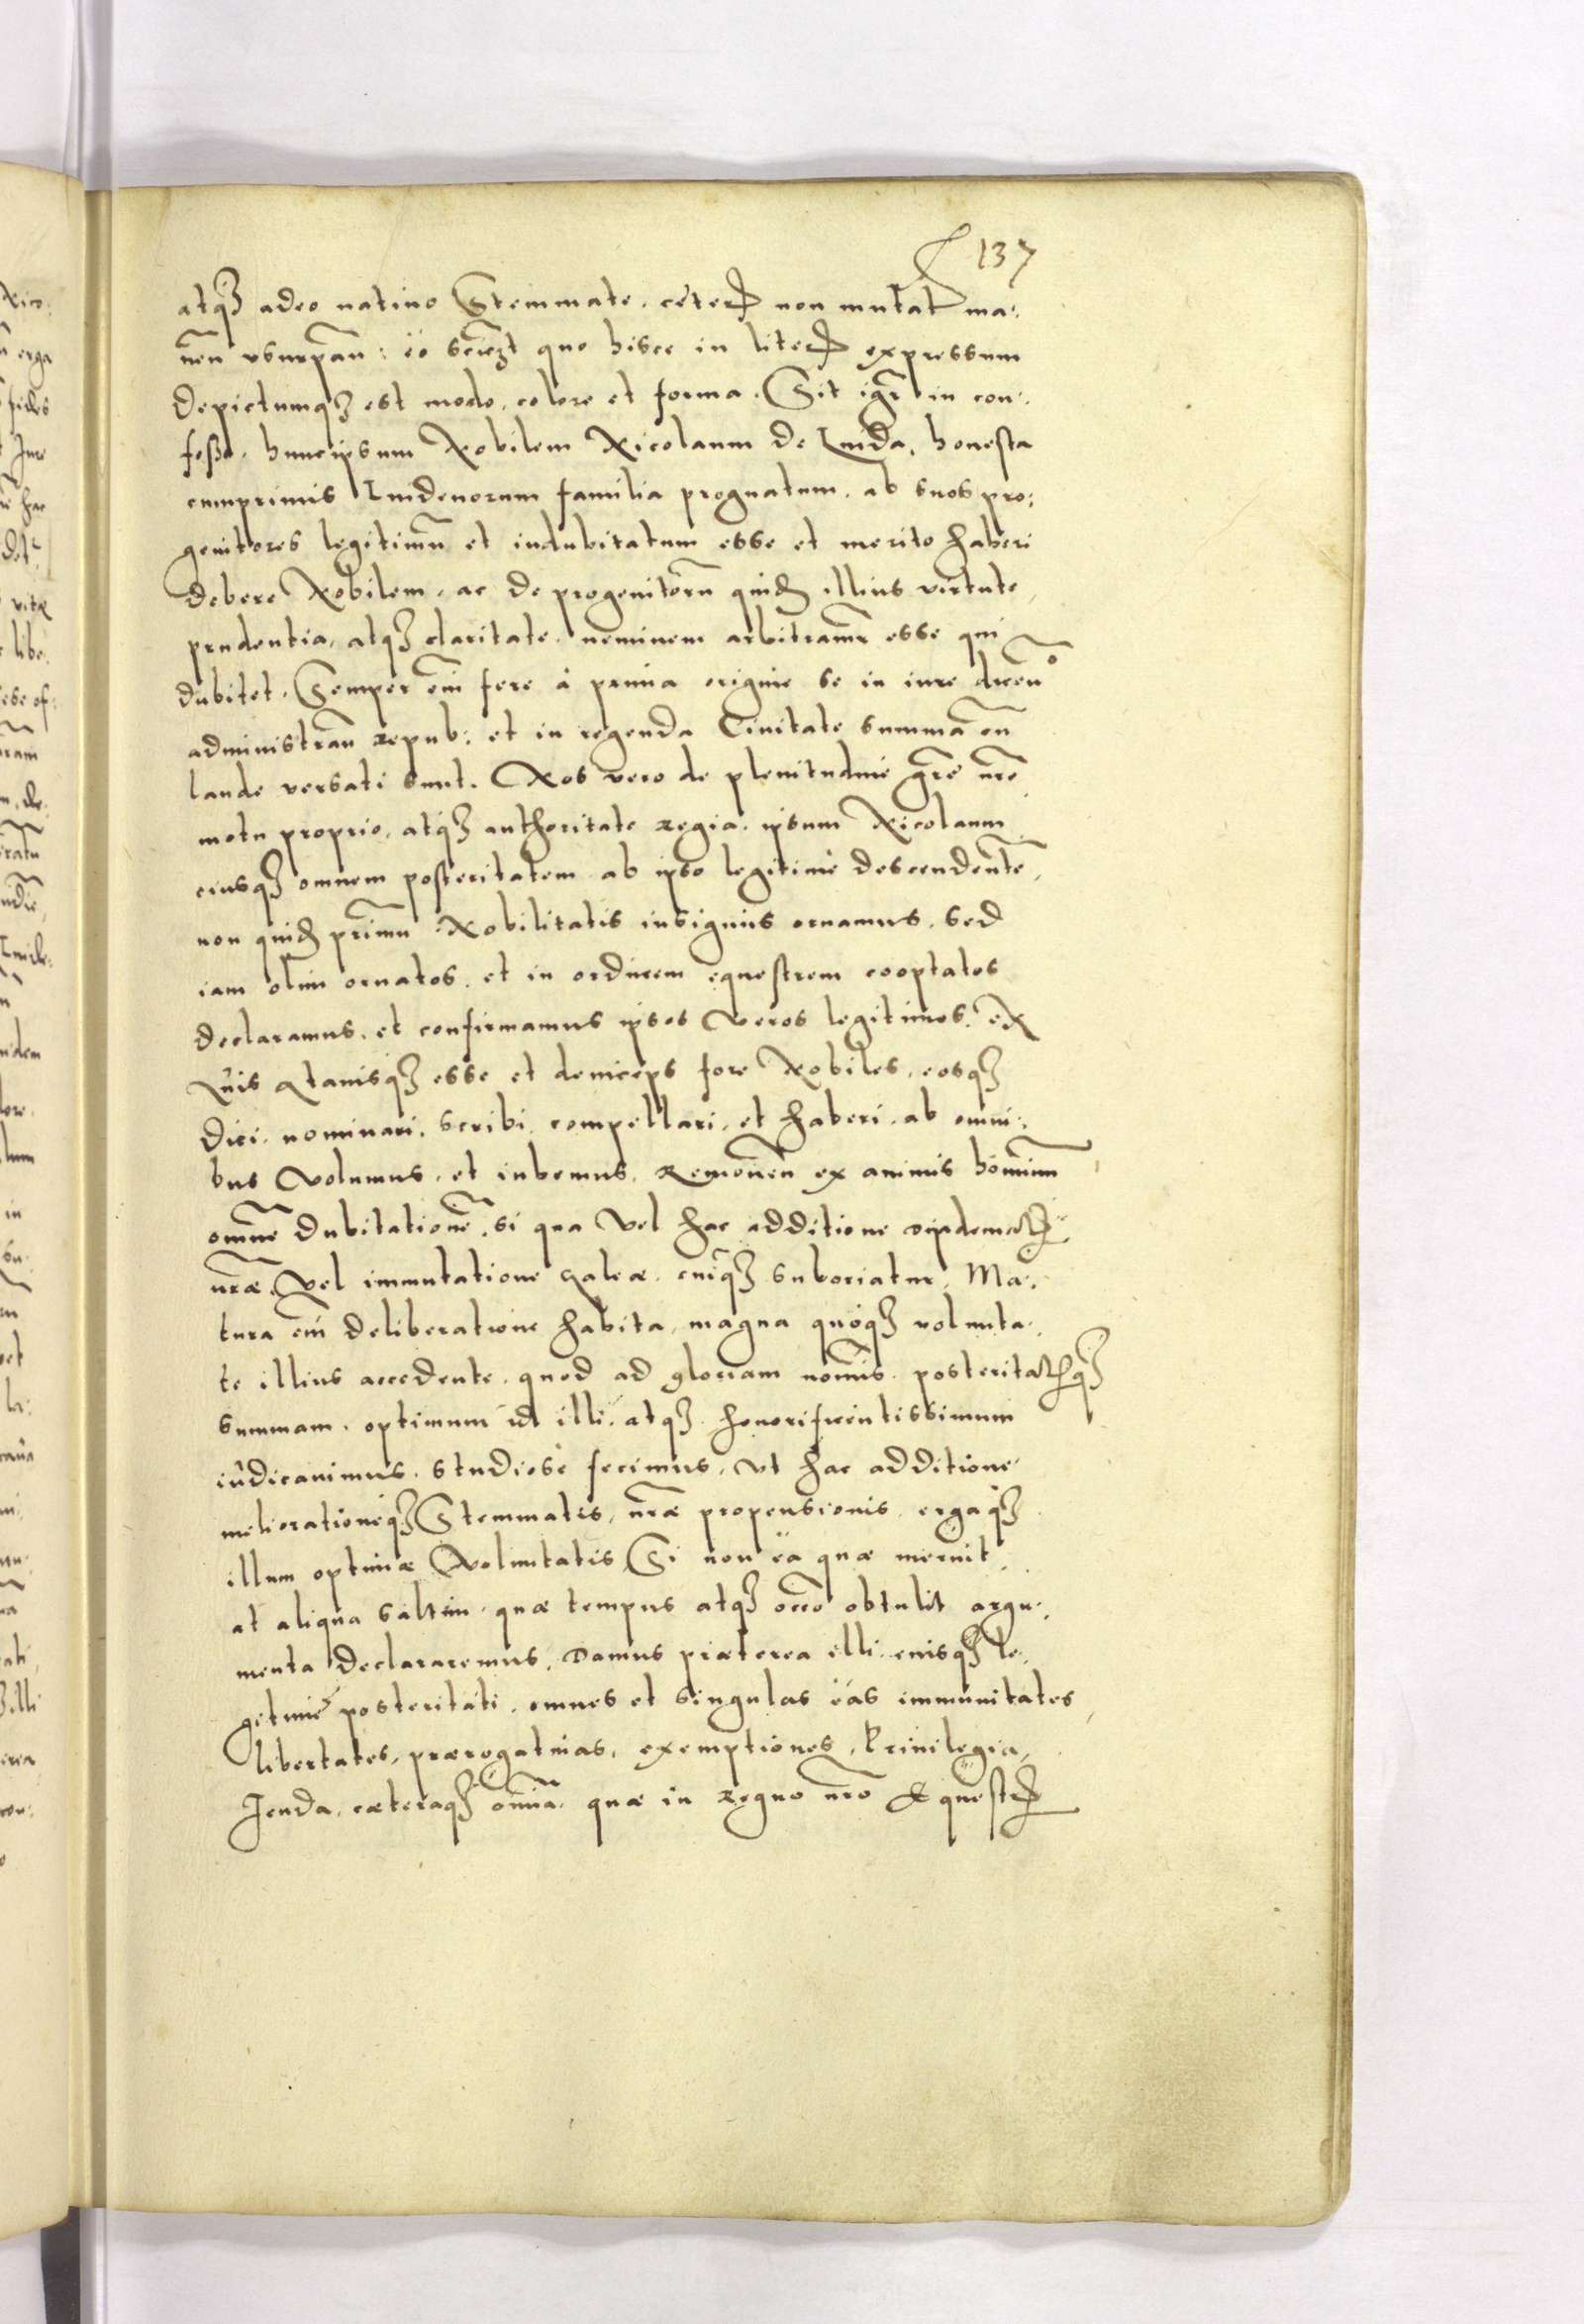 137
atq₃ adeo natiuo Stemmate. ceteris non mutatis ma:
nen̄ vsurpan̄: eo scilicet quo hisce in literis expressum
depictumq₃ est modo, colore et forma. Sit igr̄ in con:
fesso, hunc ipsum Nobilem Nicolaum de Linda, honesta
cumprimis Lindenorum familia prognatum, ab suos pro:
genitores legitimū et indubitatum esse et merito haberi
debere Nobilem, ac de progenitorū quidē illius virtute,
prudentia, atq₃ claritate, neminem arbitramr̄ esse qui
dubitet. Semper em̄ fere à prima origine se in iure dicen̄º
administran̄ repub: et in regenda Ciuitate summa cū
laude versati sunt. Nos vero de plenitudine grē nr̄e
motu proprio, atq₃ authoritate regia, ipsum Nicolaum
eiusq₃ omnem posteritatem ab ipso legitimè descendentē,
non quidē primū Nobilitatis insignijs ornamus, sed
iam olim ornatos, et in ordinem equestrem cooptatos
declaramus, et confirmamus ipsos Veros legitimos, ex
Auis Atauisq₃ esse et deinceps fore Nobiles, eosq₃
dici, nominari, scribi, compellari, et haberi, ab omni:
bus Volumus, et iubemus, Remouen̄ ex animis hominum
omnē dubitationē, si qua Vel hac additione
nr̄æ, Vel immutatione galeæ, cuiq₃ suboriatur, Ma:
tura em̄ deliberatione habita, magna quoq₃ volunta:
te illius accedente, quod ad gloriam nominis posteritatisq₃
summam, optimum id illi, atq₃ honorificentissimum
iudicauimus, studiosè fecimus, vt hac additione
meliorationeq₃ Stemmatis, nr̄æ propensionis, ergaq₃
illum optimæ Voluntatis, Si non ea quæ meruit,
at aliqua saltem quæ tempus atq₃ occō obtulit argu:
menta declararemus, Damus præterea illi eiusq₃ le:
gitimè posteritati, omnes et singulas eas immunitates,
libertates, prærogatiuas, exemptiones, Priuilegia,
Feuda, cæteraq₃ omnia, quæ in regno nr̄o Equestris